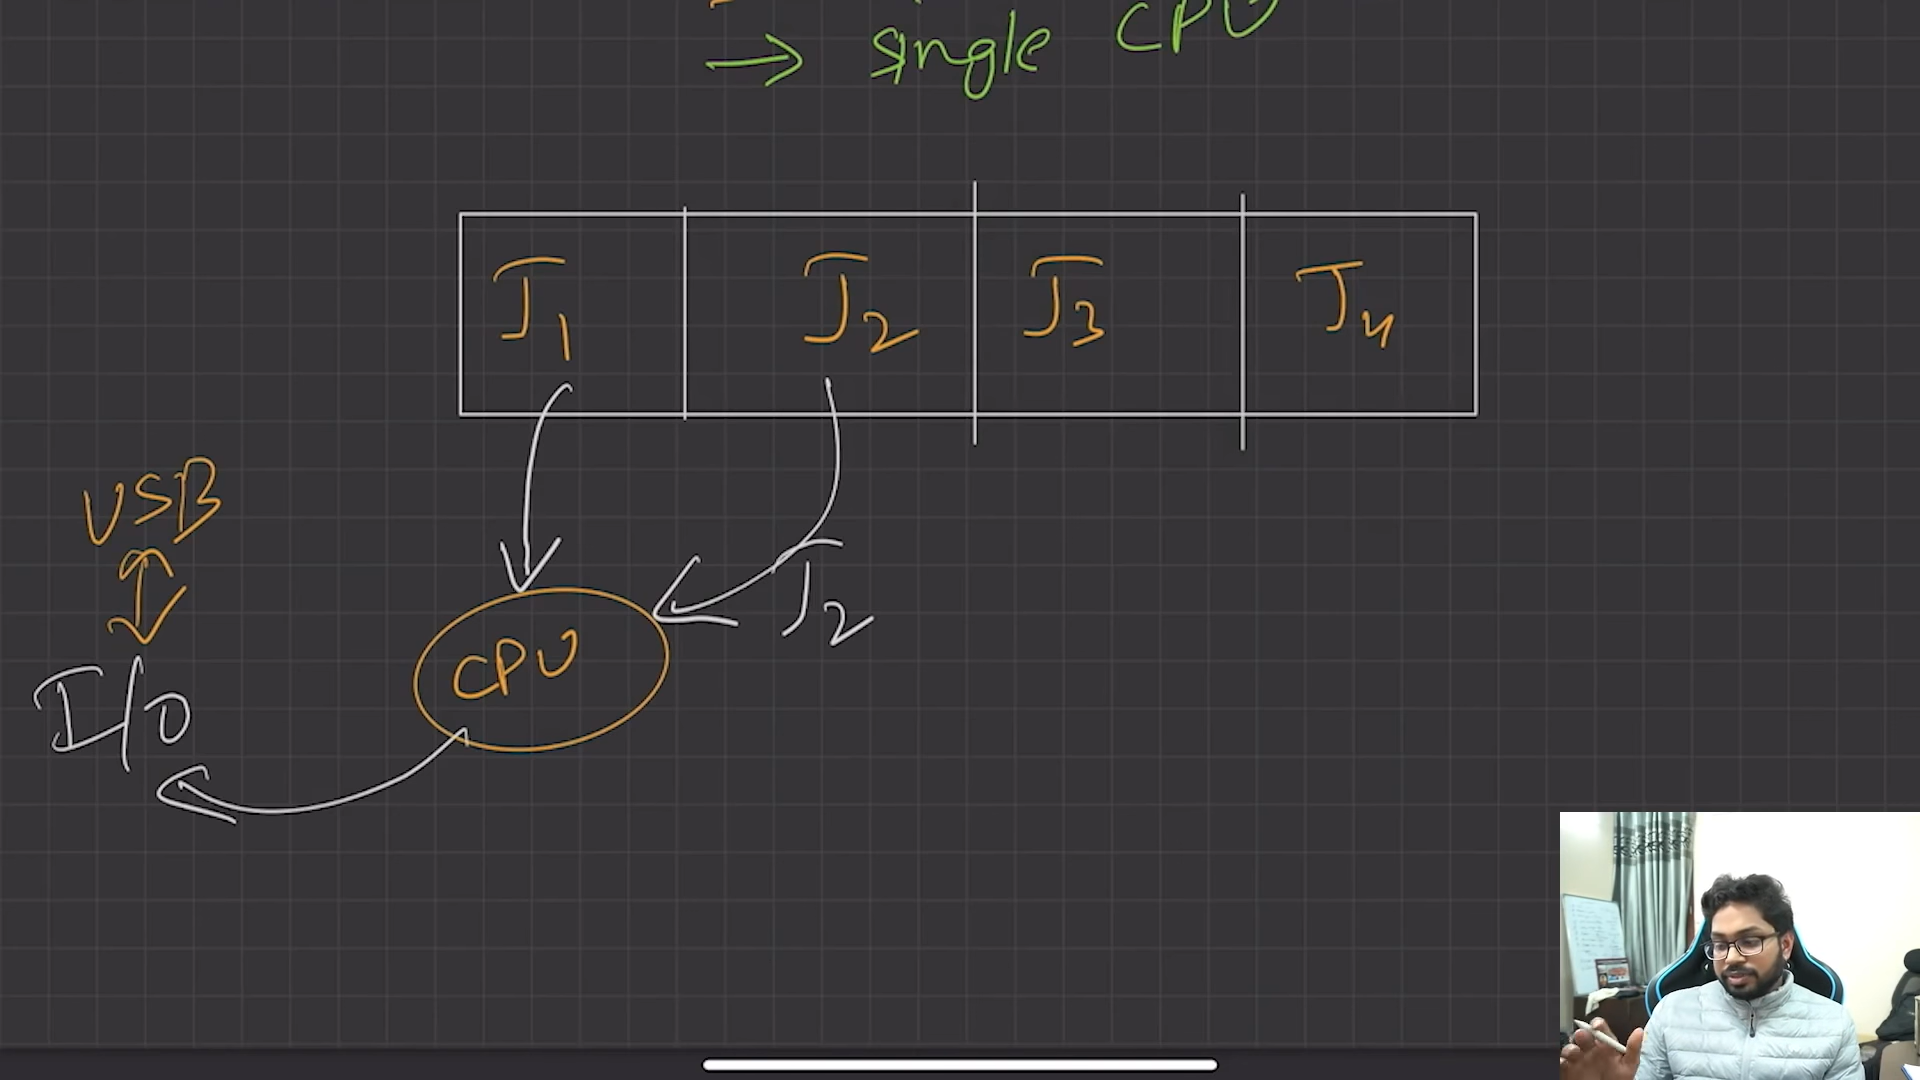 → single CPU
J1 J2 J3 J4
USB
J2
CPU
I/O